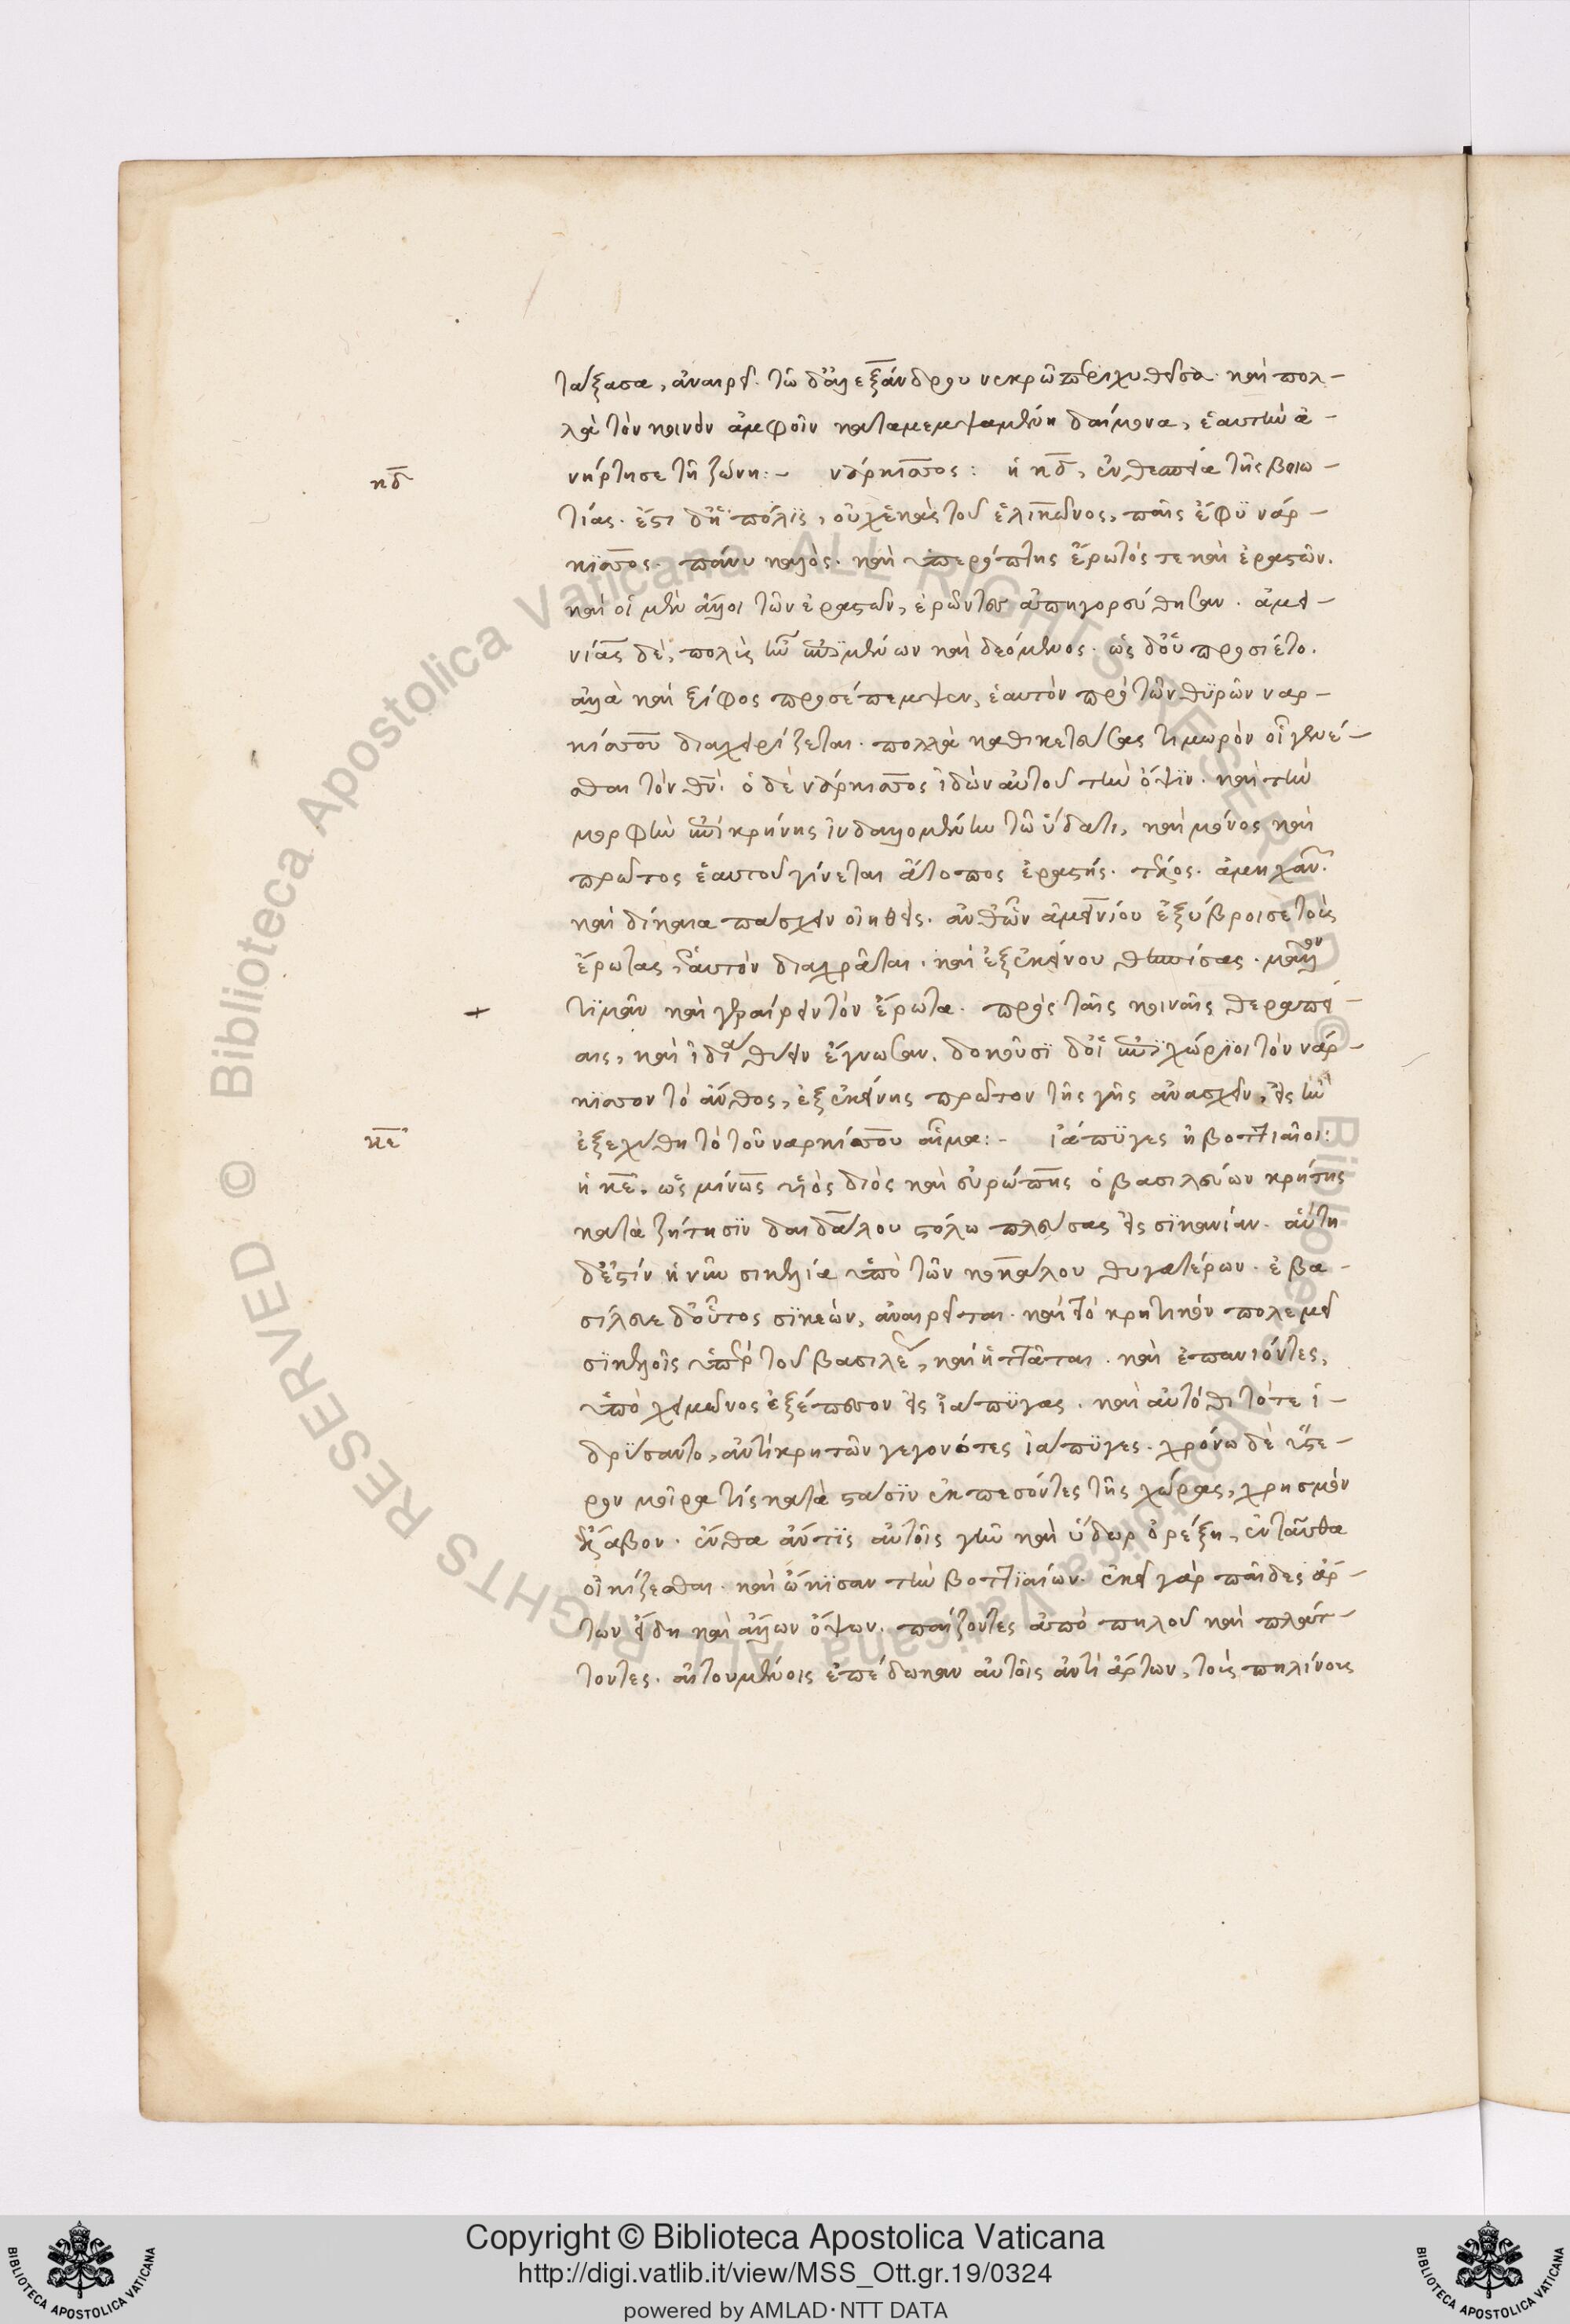 ταξασα, ἀναιρεῖ. τῶ δ' ἀλεξάνδρου νεκρῶ περιχυθεῖσα. καὶ πολ-
λὰ τὸν κοινὸν ἀμφοῖν καταμεμψαμένη δαίμονα, ἑαυτὴν ἀ-
κδ
νήρτησε τῆ ζώνη:- νάρκισσος: ἡ κδ, ἐν θεσπεία τῆς βοιω-
τίας. ἔστι δ' ἡ πόλϊς, οὐχ ἑκὰς τοῦ ἑλικῶνος, παῖς ἔφϋ νάρ-
κϊσσος. πάνυ καλὸς. καὶ ὑπερόπτης ἔρωτός τε καὶ ἐραστῶν.
καὶ οἱ μὲν ἄλλοι τῶν ἐραστῶν, ἐρῶντες ἀπηγορεύθησαν. ἀμει-
νίας δὲ, πολὺς ἦν ἐπϊμένων καὶ δεόμενος. ὡς δ' οὐ προσίετο.
ἀλλὰ καὶ ξίφος προσέπεμψεν, ἑαυτὸν πρὸ τῶν θϋρῶν ναρ-
κίσσου διαχειρίζεται. πολλὰ καθικετεύσας τιμωρὸν οἷ γενέ-
σθαι τὸν θν. ὁ δὲ νάρκισσος ἰδὼν αὐτοῦ τὴν ὄψϊν. καὶ τὴν
μορφὴν ἐπὶ κρήνης ἰνδαλλομένην τῶ ὕδατι, καὶ μόνος καὶ
πρῶτος ἑαυτοῦ γίνεται ἄτοπος ἐραστής. τέλος. ἀμηχανῶν.
καὶ δίκαια πάσχειν οἰηθεὶς. ἀνθ' ὧν ἀμεινίου ἐξύβρισε τοὺς
ἔρωτας, ἑαυτὸν διαχρᾶται. καὶ ἐξ ἐκείνου θεσπίσας. μᾶλλον
+
τϊμᾶν καὶ γεραίρειν τὸν ἔρωτα. πρὸς ταῖς κοιναῖς θεραπεί-
αις, καὶ ἰδία θύειν ἔγνωσαν. δοκοῦσϊ δ' οἱ ἐπϊχώρϊοι τὸν νάρ-
κϊσσον τὸ ἄνθος, ἐξ ἐκείνης πρῶτον τῆς γῆς ἀνασχεῖν, εἰς ἣν
κε
ἐξεχύθη τὸ τοῦ ναρκίσσου αἷμα:- ἰάπϋγες ἢ βοττιαῖοι:
ἡ κε. ὡς μίνως υἱὸς διὸς καὶ εὐρώπης ὁ βασιλεύων κρήτης
κατὰ ζήτησϊν δαιδάλου στόλω πλεύσας εἰς σϊκανίαν. αὕτη
δ' ἐστίν ἡ νῦν σικελία ὑπὸ τῶν κοκάλου θυγατέρων. ἐβα-
σίλευε δ' οὗτος σϊκελῶν, ἀναιρεῖται. καὶ τὸ κρητικὸν πολεμεῖ
σϊκελοῖς ὑπὲρ τοῦ βασιλέως, καὶ ἡττᾶται. καὶ ἐπανιόντες,
ὑπὸ χειμῶνος ἐξέπεσον εἰς ἰάπϋγας. καὶ αὐτόθι τότε ἱ-
δρϋσαντο, ἀντὶ κρητῶν γεγονότες ἰάπϋγες. χρόνω δὲ ὕστε-
ρον μοῖρα τίς κατὰ στάσϊν ἐκπεσόντες τῆς χώρας, χρησμὸν
ἔλαβον. ἔνθα ἄν τϊς αὐτοῖς γῆν καὶ ὕδωρ ὀρέξη, ἐνταῦθα
οἰκίζεσθαι. καὶ ὤκϊσαν τὴν βοττϊαίων. ἐκεῖ γὰρ παῖδες ἄρ-
των εἴδη καὶ ἄλλων ὄψων. παίζοντες ἀπὸ πηλοῦ καὶ πλάτ-
τοντες. αἰτουμένοις ἐπέδωκαν αὐτοῖς ἀντὶ ἄρτων, τοὺς πηλίνους
© Biblioteca Apostolica Vaticana ALL RIGHTS RESERVED © Biblioteca Apostolica Vaticana ALL RIGHTS RESERVED
Copyright © Biblioteca Apostolica Vaticana
http://digi.vatlib.it/view/MSS_Ott.gr.19/0324
powered by AMLAD·NTT DATA
BIBLIOTECA APOSTOLICA VATICANA
BIBLIOTECA APOSTOLICA VATICANA